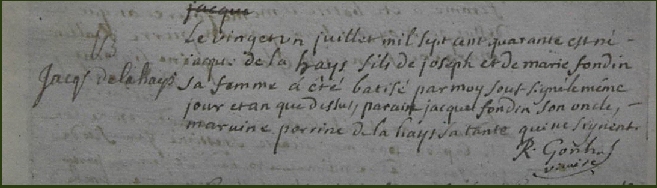 jacque
Le vinget un juillet mil sept cent quarante est né
Jacqs delahays
jacque de la hays fils de joseph et de marie fondin
sa femme a été batisé par moy sous signé le même
jour et an que dessus, parain jacque fondin son oncle,
maraine perrine de la hays sa tante qui ne signent
R.